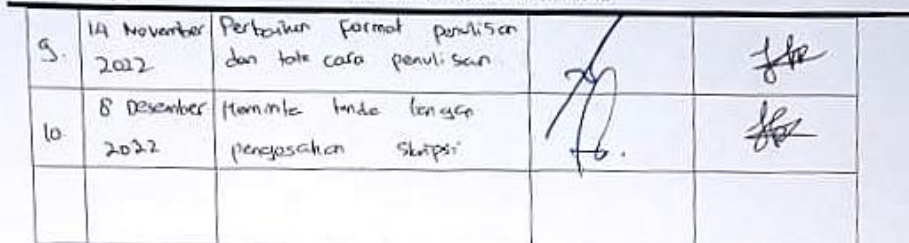 9. 14 November Perbaikan format penulisan
2022 dan tata cara penulisan
10 8 Desember Meminta tanda tangan
2022 pengesahan Skripsi